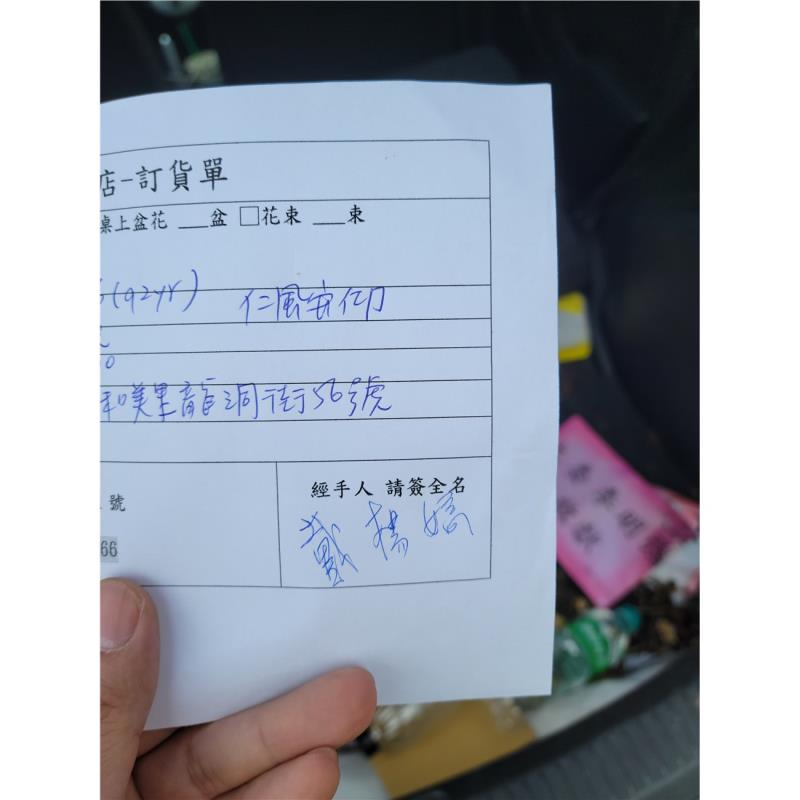 店-訂貨單
桌上盆花 ___盆 □花束 ___束
(92yr) 仁風安仰
和美里龍洞街56號
經手人 請簽全名
號
戴楊嬌
66